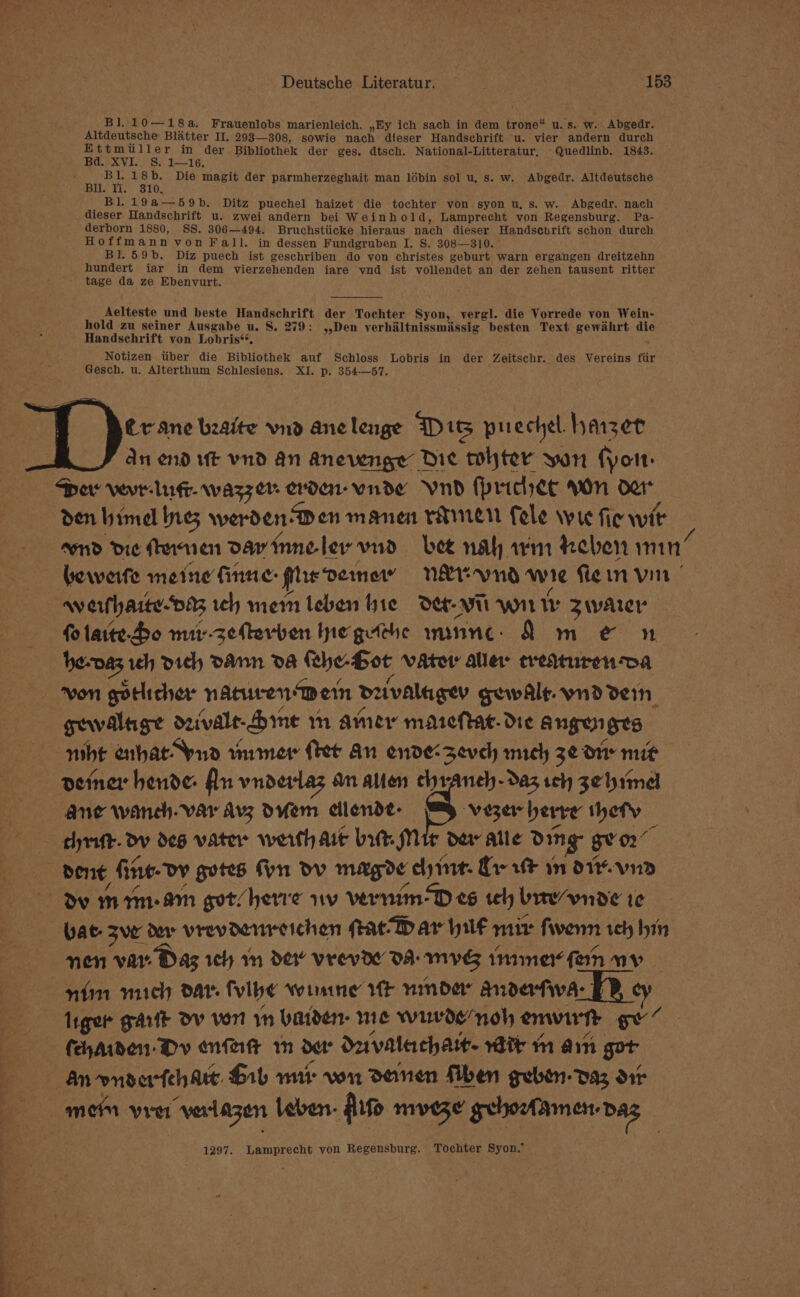 Deutsche Literatur. 153
Bl. 10—18a. Frauenlobs marienleich. „Ey ich sach in dem trone“ u. s. w. Abgedr.
Altdeutsche Blätter II. 293—308, sowie nach dieser Handschrift u. vier andern durch
Ettmüller in der Bibliothek der ges. dtsch. National-Litteratur, Quedlinb. 1843.
Bd. XVI. S. 1—16.
Bl. 18b. Die magit der parmherzeghait man löbin sol u. s. w. Abgedr. Altdeutsche
Bll. II. 310.
Bl. 19a—59b. Ditz puechel haizet die tochter von syon u. s. w. Abgedr. nach
dieser Handschrift u. zwei andern bei Weinhold, Lamprecht von Regensburg. Pa-
derborn 1880, SS. 306—494. Bruchstücke hieraus nach dieser Handschrift schon durch
Hoffmann von Fall. in dessen Fundgruben I. S. 308—310.
Bl. 59b. Diz puech ist geschriben do von christes geburt warn ergangen dreitzehn
hundert iar in dem vierzehenden iare vnd ist vollendet an der zehen tausent ritter
tage da ze Ebenvurt.
Aelteste und beste Handschrift der Tochter Syon, vergl. die Vorrede von Wein-
hold zu seiner Ausgabe u. S. 279: „Den verhältnissmässig besten Text gewährt die
Handschrift von Lobris“.
Notizen über die Bibliothek auf Schloss Lobris in der Zeitschr. des Vereins für
Gesch. u. Alterthum Schlesiens. XI. p. 354—57.
DEr ane bꝛaite vnd ane lenge Ditz puechel haizet
An end iſt vnd an anevenge Die tohter von ſyon·
Der vevr·luft·wazzer· erden· vnde vnd ſprichet von der
den himel hiez werden·Den manen ramen ſele wie ſie wir
vnd die ſternen dar inne·ler vnd bet nah irm lieben min
beweiſe meine ſinne· Mit deiner nær·vnd wie ſie in vm
weiſhaite·daz ich mein leben hie der·vn̄ von ir zwaier
ſo laite·So mir·ze ſterben hie geſche minne· A m e n
he·daz ich dich dann da ſehe·Got vater aller creaturen·da
von götlicher naturen·Dein dꝛivaltiger gewalt·vnd dein
gewaltige dꝛivalt·Sint in ainer maieſtat·die angenges
niht enhat·Vnd immer ſtet an ende·zevch mich ze dir mit
deiner hende· An vnderlaz an allen chranch·daz ich ze himel
ane wanch·var avz diſem ellende· Svezer herre iheſv
chriſt·dv des vater weiſhait biſt·Mit der alle ding geoꝛ
dent ſint·dv gotes ſvn dv mægde chint·Er iſt in dir·vnd
dv in im·ain got/herre nv vernim·Des ich bitte/vnde ie
bat·zve der vrevdenreichen ſtat·Dar hilf mir ſwenn ich hin
nen var·Daz ich in der vrevde da·mvez immer ſein nv
nim mich dar·ſvlhe wunne iſt ninder anderſwa·Hey
liger gaiſt dv von in baiden·nie wurde/noh enwirſt ge
ſchaiden·Dv enſeiſt in der dꝛivaltichait·mit in ain got
an vnderſchait·Gib mir von deinen ſiben geben·daz dir
mein vrei verlazen leben·Alſo mveze gehoꝛſamen·daz
1297. Lamprecht von Regensburg. Tochter Syon.